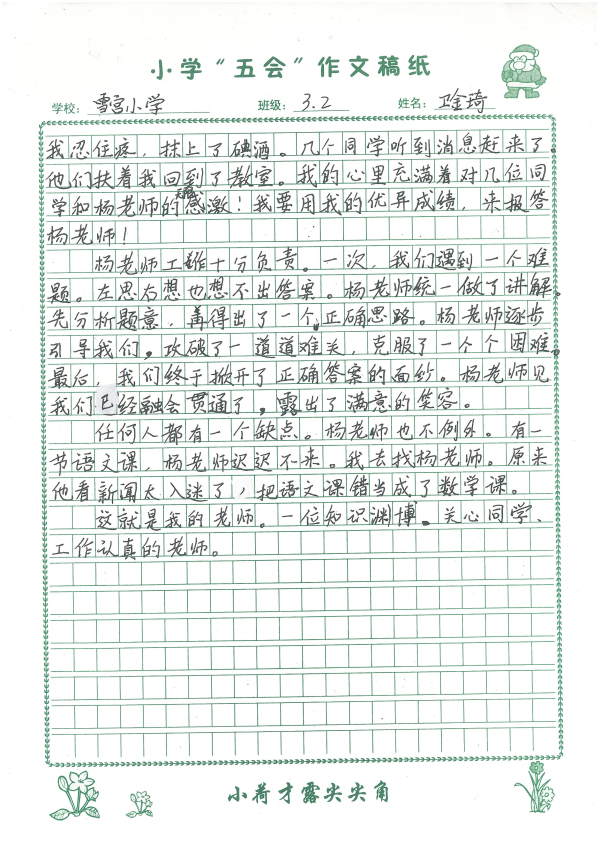 小学“五会”作文稿纸
学校：雪宫小学 班级：3.2 姓名：卫金琦
我忍住疼，抹上了碘酒。几个同学听到消息赶来了。
他们扶着我回到了教室。我的心里充满着对几位同
学和杨老师的感激！我要用我的优异成绩，来报答
杨老师！
杨老师工作十分负责。一次，我们遇到一个难
题。左思右想也想不出答案。杨老师统一做了讲解。
先分析题意，再得出了一个正确思路。杨老师逐步
引导我们，攻破了一道道难关，克服了一个个困难。
最后，我们终于掀开了正确答案的面纱。杨老师见
我们已经融会贯通了，露出了满意的笑容。
任何人都有一个缺点。杨老师也不例外。有一
节语文课，杨老师迟迟不来。我去找杨老师。原来
他看新闻太入迷了，把语文课错当成了数学课。
这就是我的老师。一位知识渊博、关心同学、
工作认真的老师。
小荷才露尖尖角